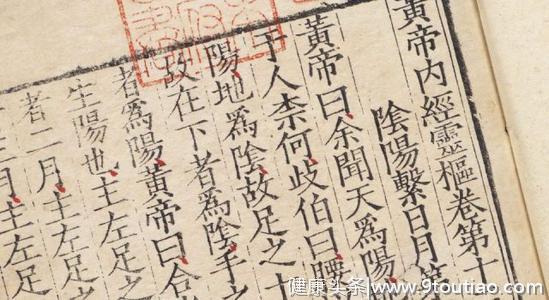 黃帝內經靈樞卷第十
陰陽繫日月第
黃帝曰余聞天爲陽
于人柰何歧伯曰腰
陽地爲陰故足之十
故在下者爲陰手之
者爲陽黃帝曰合
生陽也主左足
者二月主左足
月主左足
健康头条/www.9toutiao.com